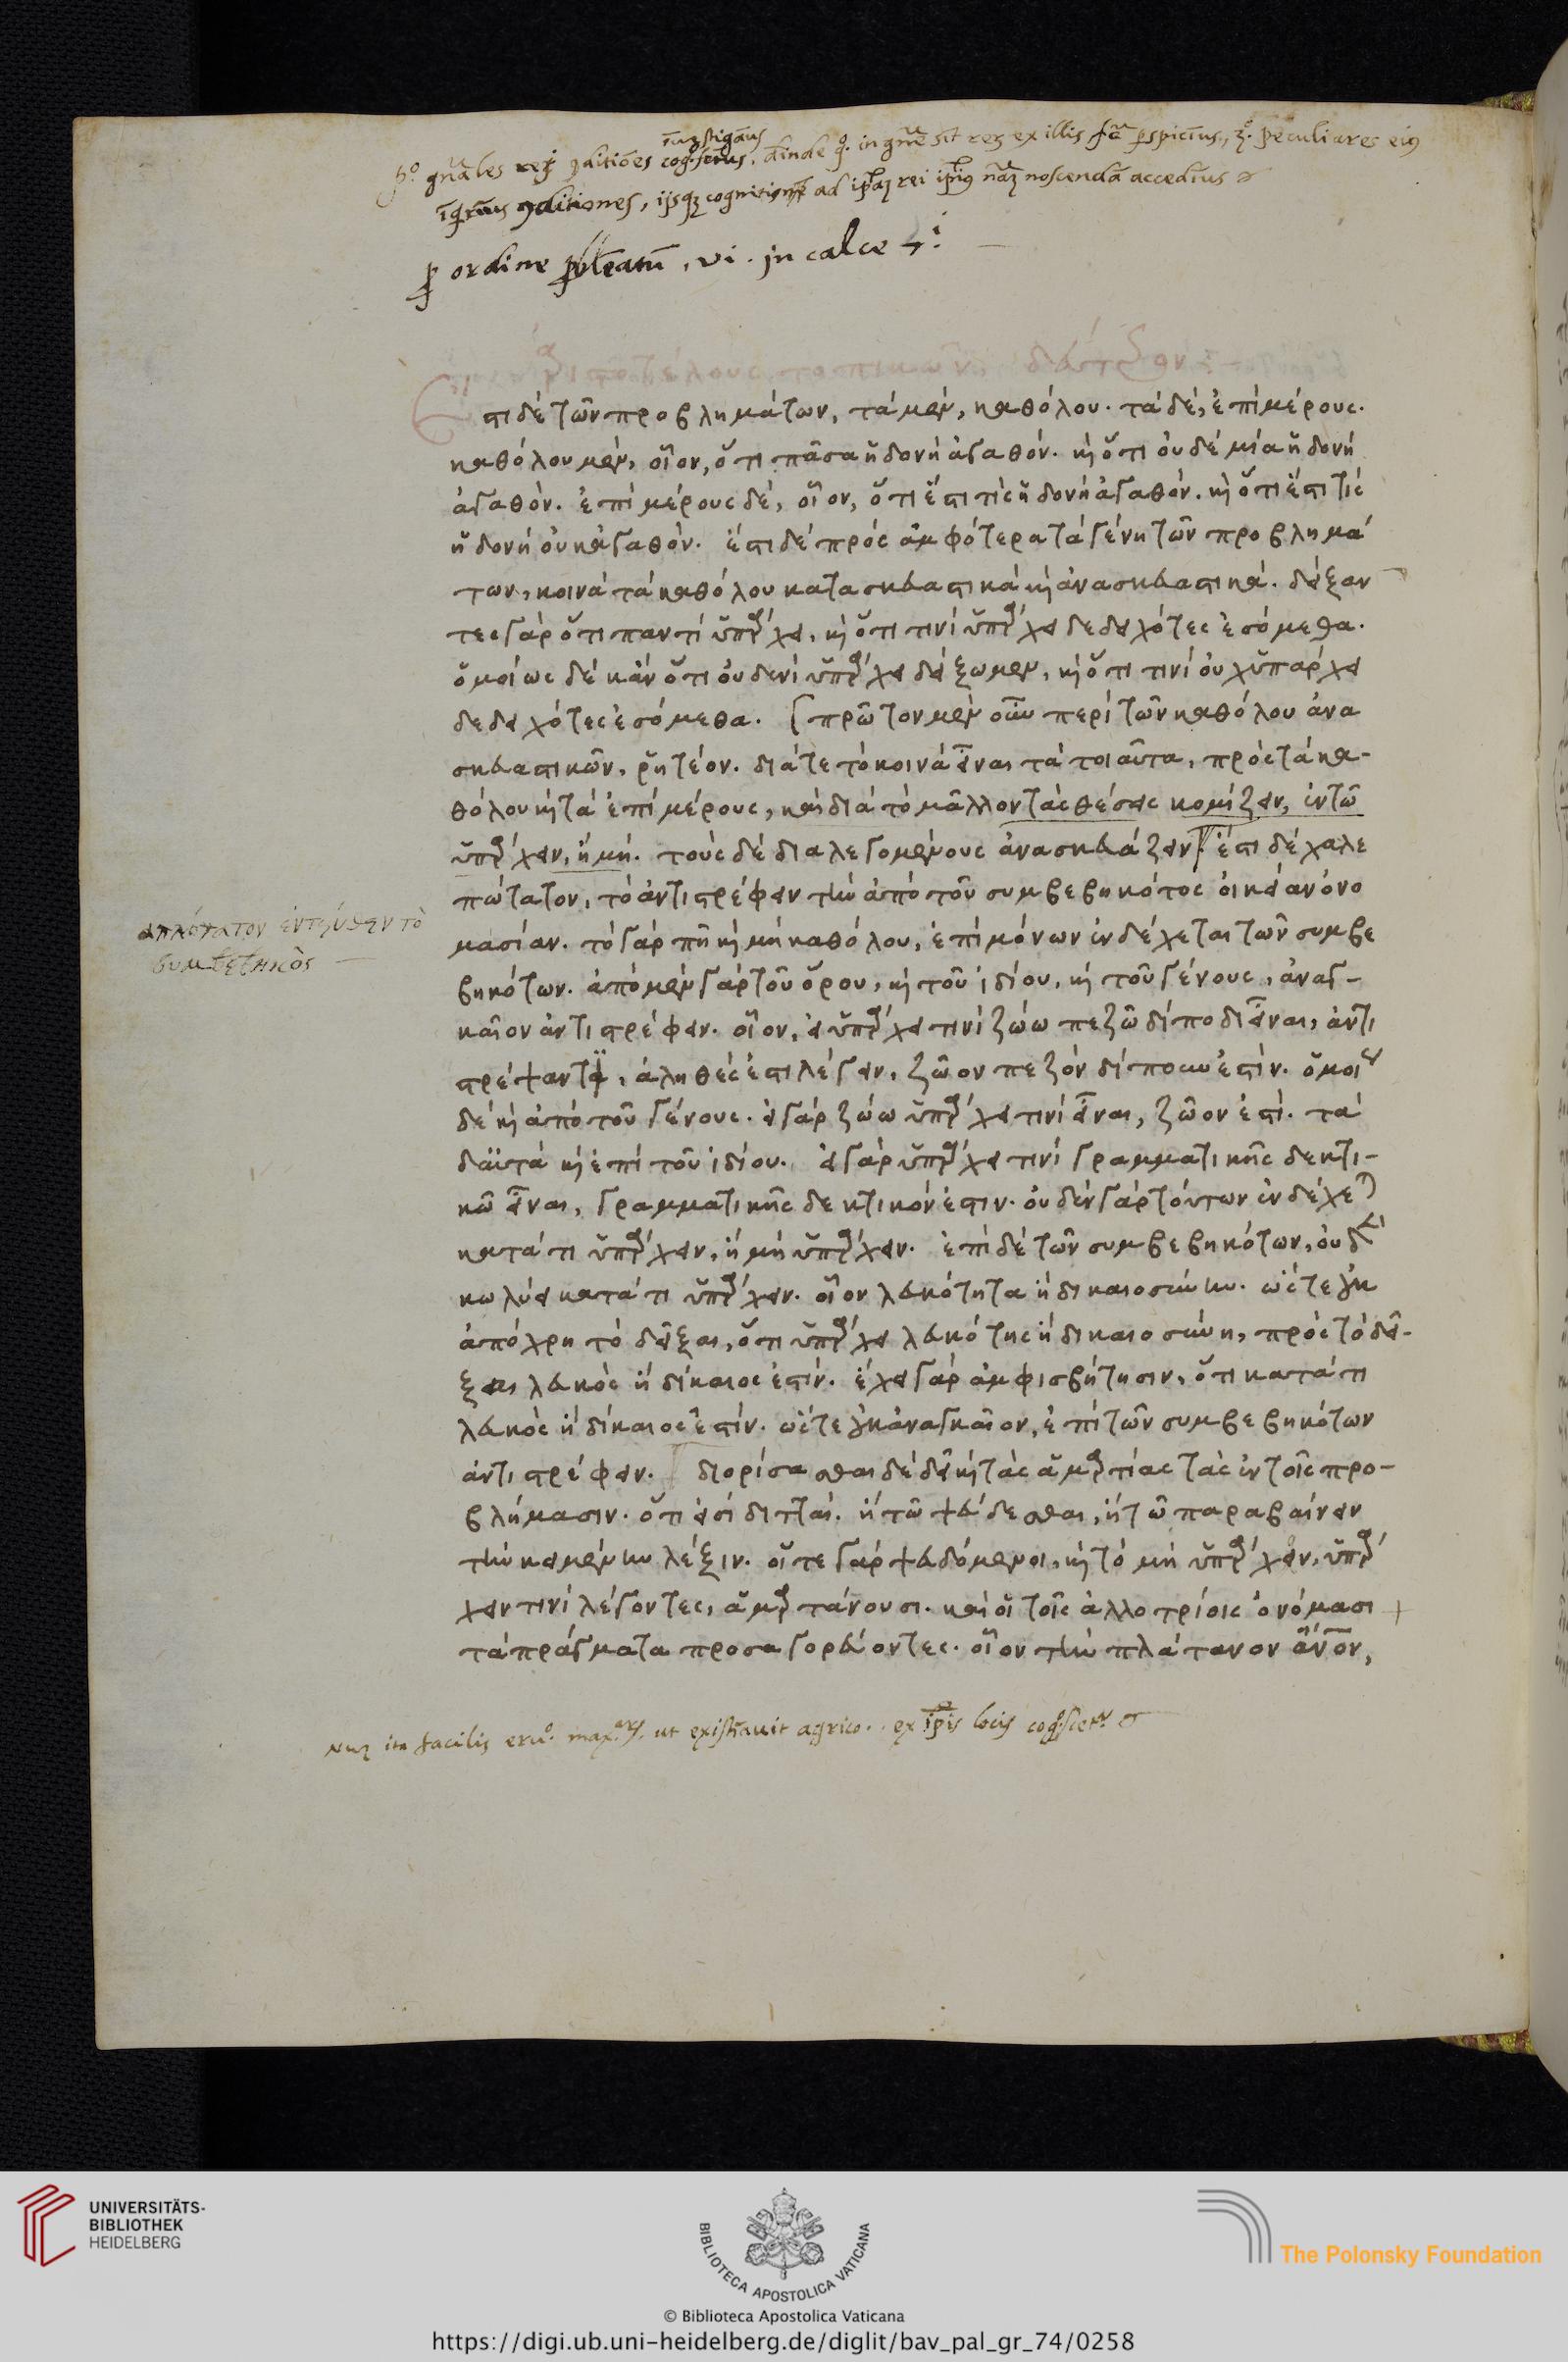 ordine
in calce
ἀριστοτέλους τοπικῶν δεύτερον
Ἔστι δὲ τῶν προβλημάτων, τὰ μὲν, καθόλου· τὰ δὲ, ἐπὶ μέρους.
καθόλου μὲν, οἷον, ὅτι πᾶσα ἡδονὴ ἀγαθόν. κὶ ὅτι οὐδὲ μία ἡδονὴ
ἀγαθόν. ἐπὶ μέρους δὲ, οἷον, ὅτι ἔστι τὶς ἡδονὴ ἀγαθόν. κὶ ὅτι ἔστι τὶς
ἡδονὴ οὐκ ἀγαθόν. ἔστι δὲ πρὸς ἀμφότερα τὰ γένη τῶν προβλημά
των, κοινὰ τὰ καθόλου κατασκευαστικὰ κὶ ἀνασκευαστικά. δείξαν
τες γὰρ ὅτι παντὶ ὑπάρχει, κὶ ὅτι τινὶ ὑπάρχει δεδειχότες ἐσόμεθα.
ὁμοίως δὲ κἂν ὅτι οὐδενὶ ὑπάρχει δείξωμεν, κὶ ὅτι τινὶ οὐχ ὑπάρχει
δεδειχότες ἐσόμεθα. πρῶτον μὲν οὖν περὶ τῶν καθόλου ἀνα
σκευαστικῶν, ῥητέον. διά τε τὸ κοινὰ εἶναι τὰ τοιαῦτα, πρὸς τὰ κα-
θόλου κὶ τὰ ἐπὶ μέρους, καὶ διὰ τὸ μᾶλλον τὰς θέσεις κομίζειν, ἐν τῷ
ὑπάρχειν, ἢ μή. τοὺς δὲ διαλεγομένους ἀνασκευάζειν. ἔστι δὲ χαλε
πώτατον, τὸ ἀντιστρέφειν τὴν ἀπὸ τοῦ συμβεβηκότος οἰκείαν ὀνο
μασίαν. τὸ γὰρ πῆ κὶ μὴ καθόλου, ἐπὶ μόνων ἐνδέχεται τῶν συμβε
βηκότων. ἀπὸ μὲν γὰρ τοῦ ὅρου, κὶ τοῦ ἰδίου, κὶ τοῦ γένους, ἀναγ-
καῖον ἀντιστρέφειν. οἷον, εἰ ὑπάρχει τινὶ ζώω πεζῶ δίποδι εἶναι, ἀντι
στρέψαντι, ἀληθὲς ἔσται λέγειν, ζῶον πεζὸν δίπουν ἐστίν. ὁμοίως
δὲ κὶ ἀπὸ τοῦ γένους. εἰ γὰρ ζώω ὑπάρχει τινὶ εἶναι, ζῶον ἐστί. τὰ
δ' αὐτὰ κὶ ἐπὶ τοῦ ἰδίου. εἰ γὰρ ὑπάρχει τινὶ γραμματικῆς δεκτι-
κῶ εἶναι, γραμματικῆς δεκτικόν ἐστιν. οὐδὲν γὰρ τούτων ἐνδέχεται
κατά τι ὑπάρχειν, ἢ μὴ ὑπάρχειν. ἐπὶ δὲ τῶν συμβεβηκότων, οὐδὲν
κωλύει κατά τι ὑπάρχειν. οἷον λευκότητα ἢ δικαιοσύνην. ὥστε οὐκ
ἀπόχρη τὸ δεῖξαι, ὅτι ὑπάρχει λευκότης ἢ δικαιοσύνη, πρὸς τὸ δεῖ-
ξαι λευκὸς ἢ δίκαιος ἐστίν. ἔχει γὰρ ἀμφισβήτησιν, ὅτι κατά τι
λευκὸς ἢ δίκαιος ἐστίν. ὥστε οὐκ ἀναγκαῖον, ἐπὶ τῶν συμβεβηκότων
ἀντιστρέφειν. διορίσασθαι δὲ δεῖ κὶ τὰς ἁμαρτίας τὰς ἐν τοῖς προ-
βλήμασιν. ὅτι εἰσὶ διτταί. ἢ τῶ ψεύδεσθαι, ἢ τῶ παραβαίνειν
τὴν κειμένην λέξιν. οἵ τε γὰρ ψευδόμενοι, κὶ τὸ μὴ ὑπάρχειν, ὑπάρ
χειν τινὶ λέγοντες, ἁμαρτάνουσι. καὶ οἱ τοῖς ἀλλοτρίοις ὀνόμασι
τὰ πράγματα προσαγορεύοντες. οἷον τὴν πλάτανον ἄνον,
ἐντεῦθεν τὸ
συμβεβηκὸς
ita facilis ut existimavit agrico. ex ipsis locis
UNIVERSITÄTS-
BIBLIOTHEK
HEIDELBERG
BIBLIOTECA APOSTOLICA VATICANA
The Polonsky Foundation
© Biblioteca Apostolica Vaticana
https://digi.ub.uni-heidelberg.de/diglit/bav_pal_gr_74/0258